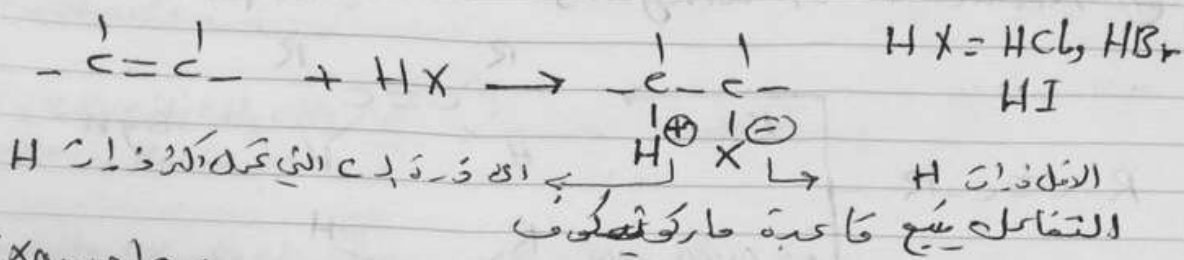 - C = C - + HX → - C - C - HX = HCl, HBr
HI
H⊕ X⊖
الى ذرة C التي تحمل اكثر ذرات H
الاقل ذرات H
التفاعل يتبع قاعدة ماركونيكوف